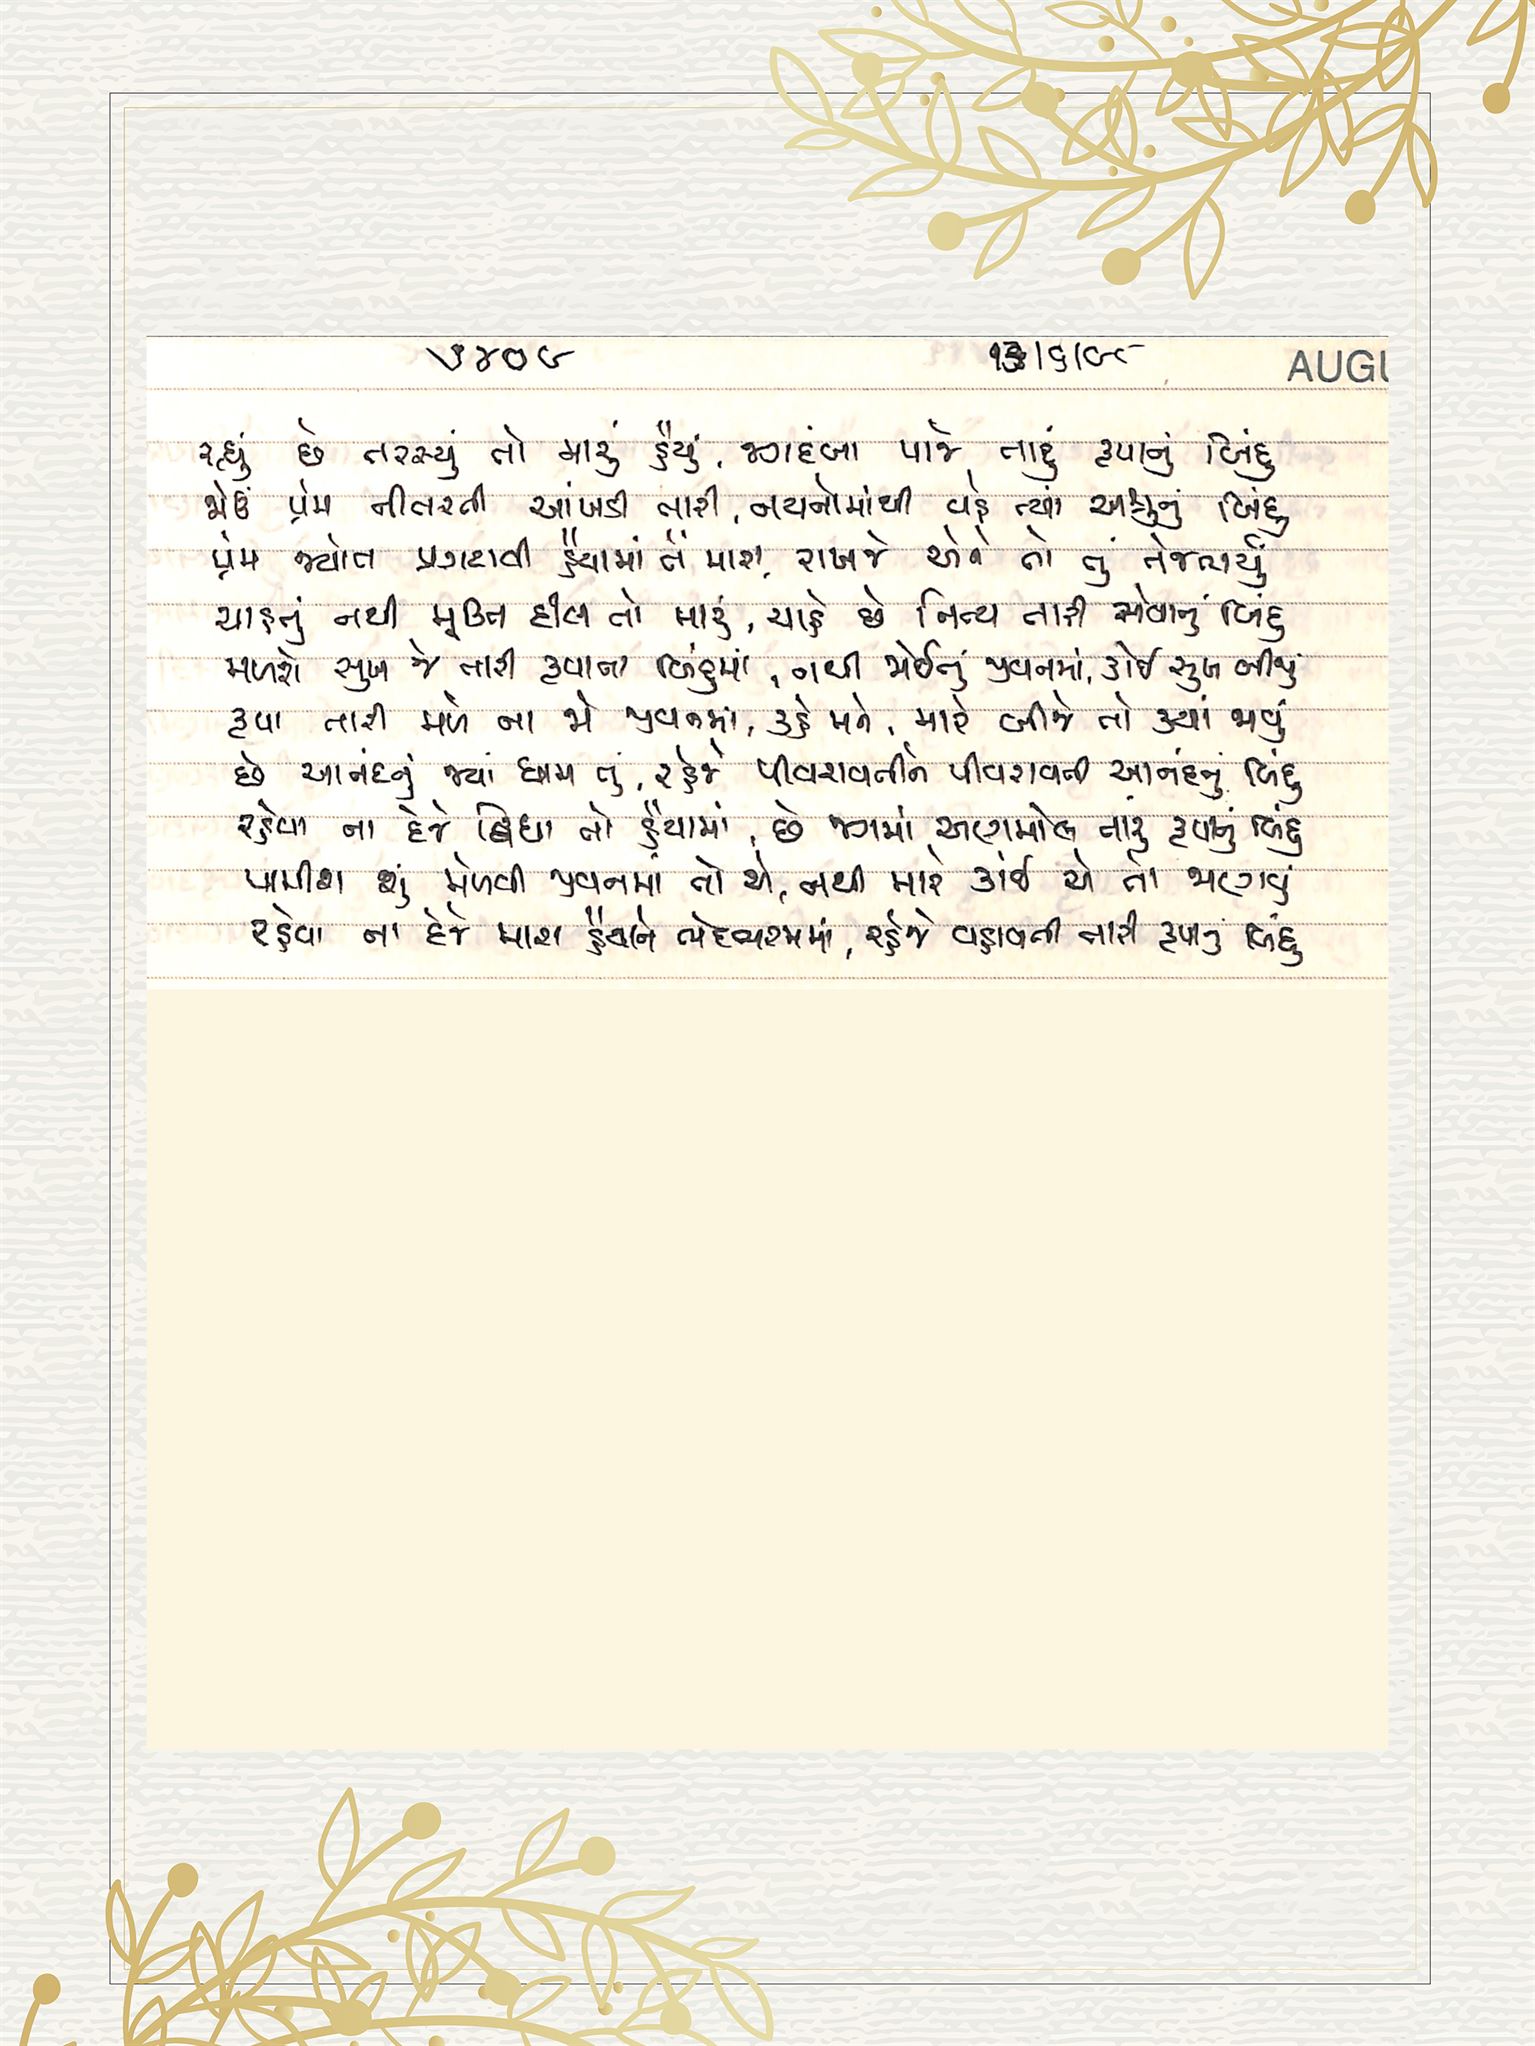 ૫૪૦૯ ૧૩/૬/૯૮ AUGU
રહ્યું છે તરસ્યું તો મારું હૈયું, જગદંબા પાજે તારું કૃપાનું બિંદુ
જોઉં પ્રેમ નીતરતી આંખડી તારી, નયનોમાંથી વહે ત્યાં અશ્રુનું બિંદુ
પ્રેમ જ્યોત પ્રગટાવી હૈયામાં તેં મારા, રાખજે એને તો તું તેજભર્યું
ચાહતું નથી મૂક્તિ દીલ તો મારું, ચાહે છે નિત્ય તારી સેવાનું બિંદુ
મળશે સુખ જે તારી કૃપાના બિંદુમાં, નથી જોઈતું જીવનમાં, કોઈ સુખ બીજું
કૃપા તારી મળે ના જો જીવનમાં, કહે મને, મારે બીજે તો ક્યાં જાવું
છે આનંદનું જ્યાં ધામ તું, રહેજે પીવરાવતીને પીવરાવતી આનંદનું બિંદુ
રહેવા ના દેજે દ્વિધા તો હૈયામાં, છે જગમાં અણમોલ તારું કૃપાનું બિંદુ
પામીશ શું મેળવી જીવનમાં તો એ, નથી મારે કાંઈ એ તો જાણવું
રહેવા ના દેજે મારા હૈયાને ભેદભરમમાં, રહેજે વહાવતી તારી કૃપાનું બિંદુ